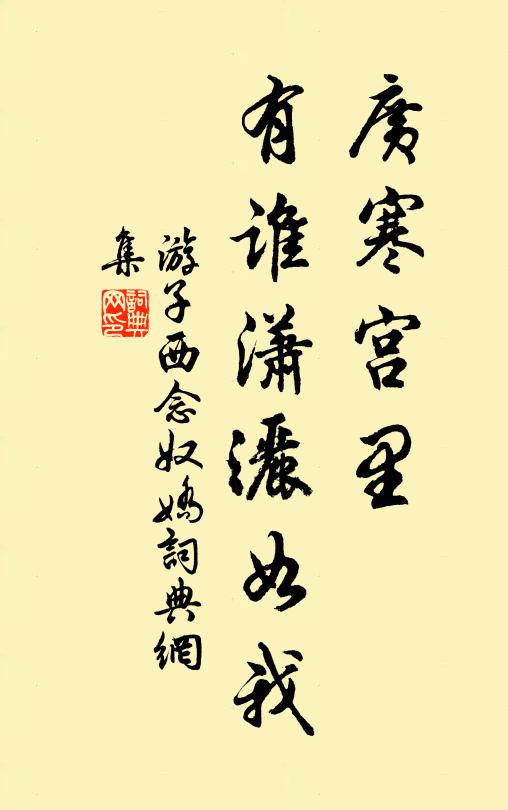 廣寒宮里
有誰瀟灑如我
游子西念奴嬌詞典網
集
詞典
网印